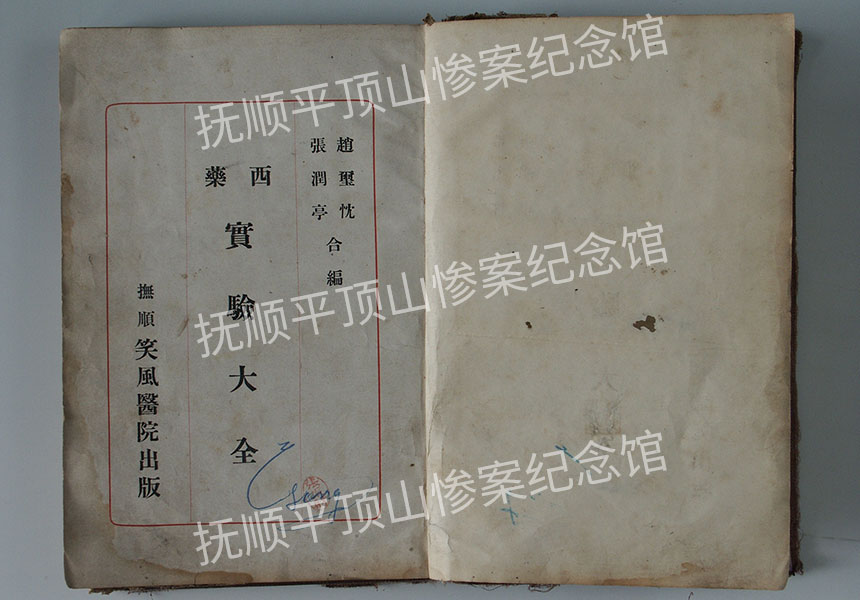 趙璽忱
張潤亭
合編
西藥
實驗大全
撫順笑風醫院出版
抚顺平顶山惨案纪念馆
抚顺平顶山惨案纪念馆
抚顺平顶山惨案纪念馆